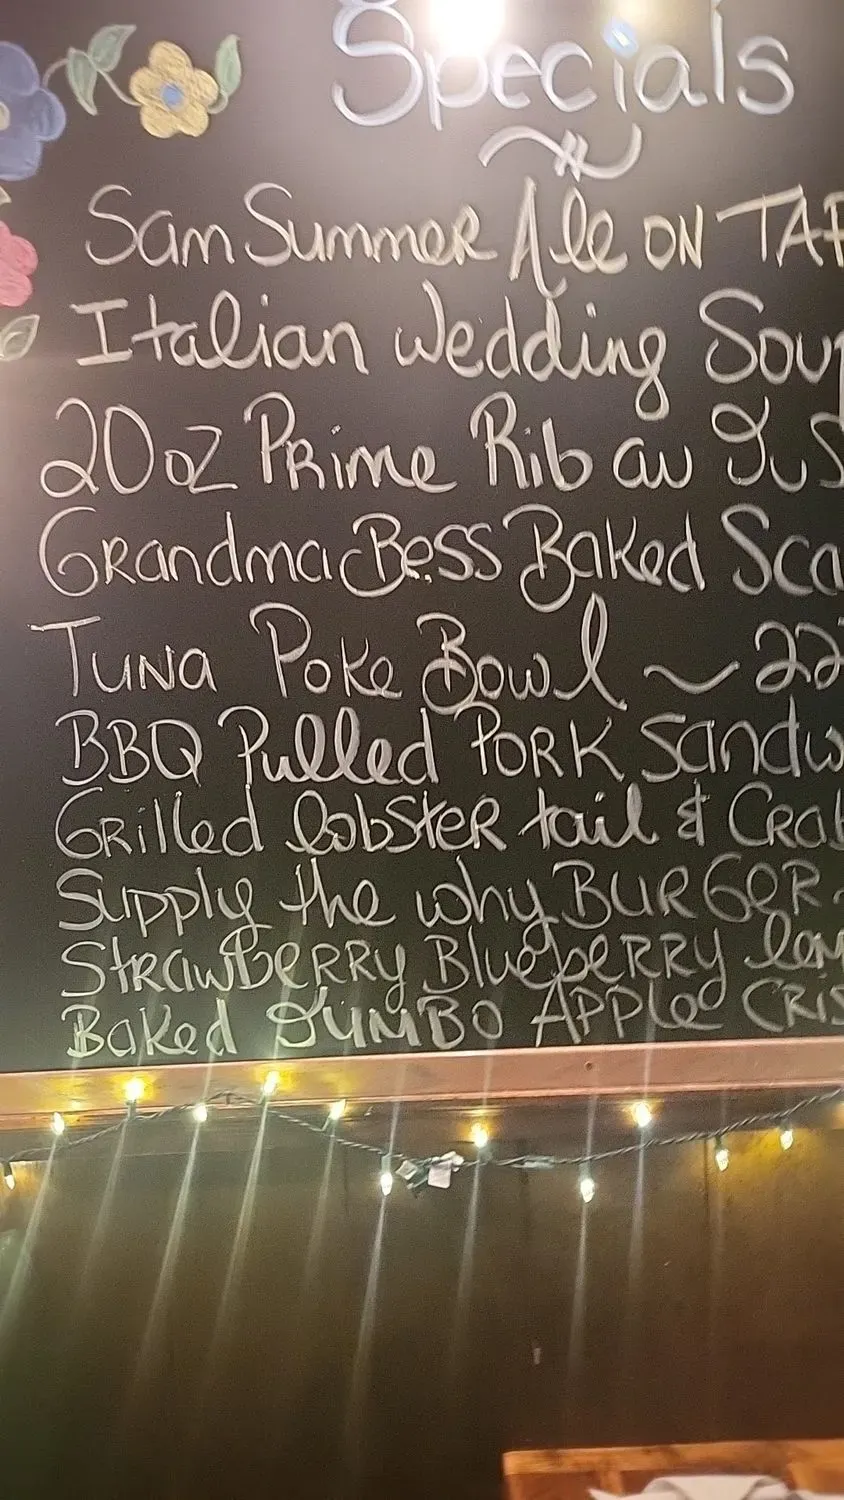 Specials
Sam Summer Ale ON TAP
Italian Wedding Soup
20oz Prime Rib au Jus
Grandma Bess Baked Sca
Tuna Poke Bowl ~ 22
BBQ Pulled PORK Sandw
Grilled lobster tail & Crab
Supply the why BURGER
Strawberry Blueberry lem
Baked JUMBO APPLE CRIS